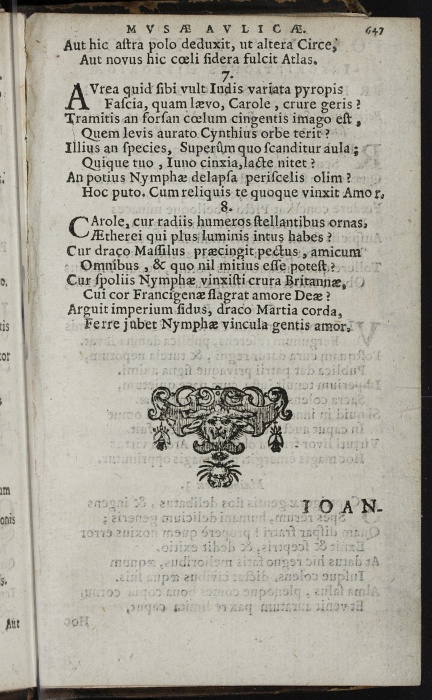 MVSÆ AVLICÆ. 647
Aut hic astra polo deduxit, ut altera Circe,
Aut novus hic cœli sidera fulcit Atlas.
7.
AVrea quid sibi vult Indis variata pyropis
Fascia, quam lævo, Carole, crure geris?
Tramitis an forsan cœlum cingentis imago est,
Quem levis aurato Cynthius orbe terit?
Illius an species, Superûm quo scanditur aula;
Quique tuo, Iuno cinxia, lacte nitet?
An potius Nymphæ delapsa periscelis olim?
Hoc puto. Cum reliquis te quoque vinxit Amor.
8.
CArole, cur radiis humeros stellantibus ornas,
Ætherei qui plus luminis intus habes?
Cur draco Massilus præcingit pectus, amicum
Omnibus, & quo nil mitius esse potest?
Cur spoliis Nymphæ vinxisti crura Britannæ,
Cui cor Francigenæ flagrat amore Deæ?
Arguit imperium sidus, draco Martia corda,
Ferre jubet Nymphæ vincula gentis amor.
IOAN-
Aut